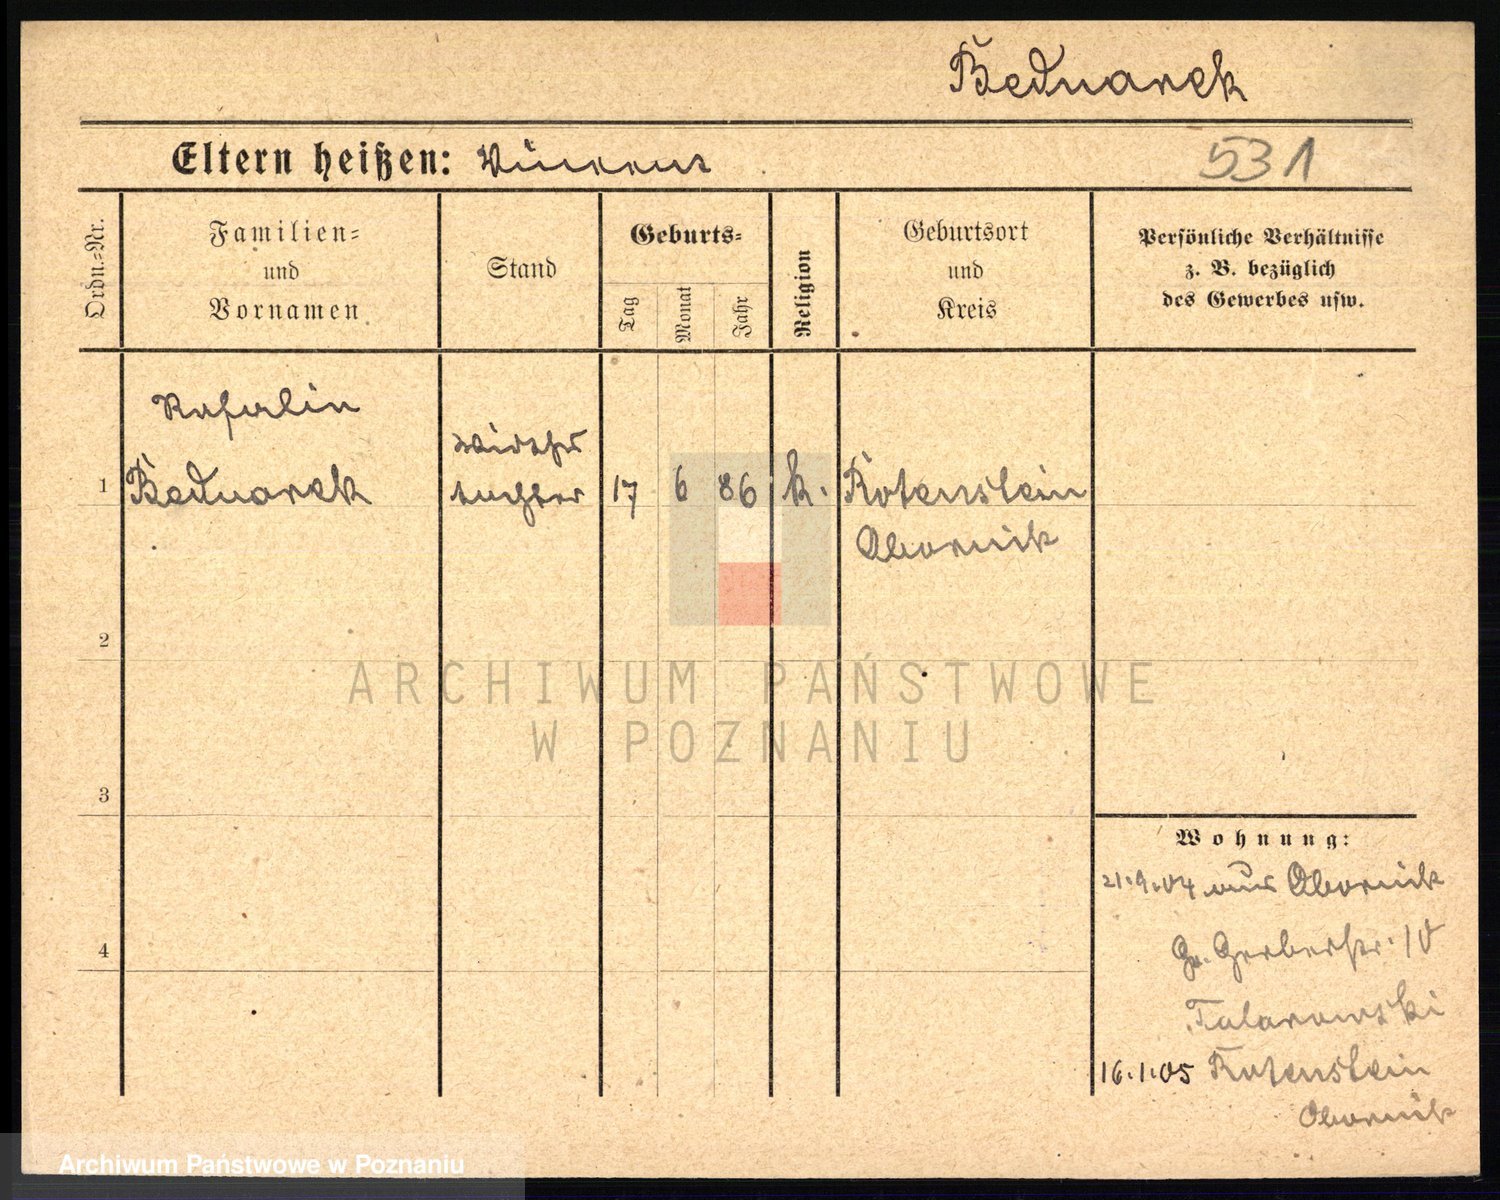 Bednarek
Eltern heißen: Vincent
531
Ordn.-Nr.
Familien-
und
Vornamen
Stand
Geburts-
Tag
Monat
Jahr
Religion
Geburtsort
und
Kreis
Persönliche Verhältnisse
z. B. bezüglich
des Gewerbes usw.
1
Bednarek
Wirths
tochter
17 6 86 k.
Rotenstein
Obornik
2
3
4
Wohnung:
21.9.04 aus Obornik
Gr. Gerberstr. 10
Talarowski
16.1.05 Rotenstein
Obornik
ARCHIWUM PAŃSTWOWE
W POZNANIU
Archiwum Państwowe w Poznaniu